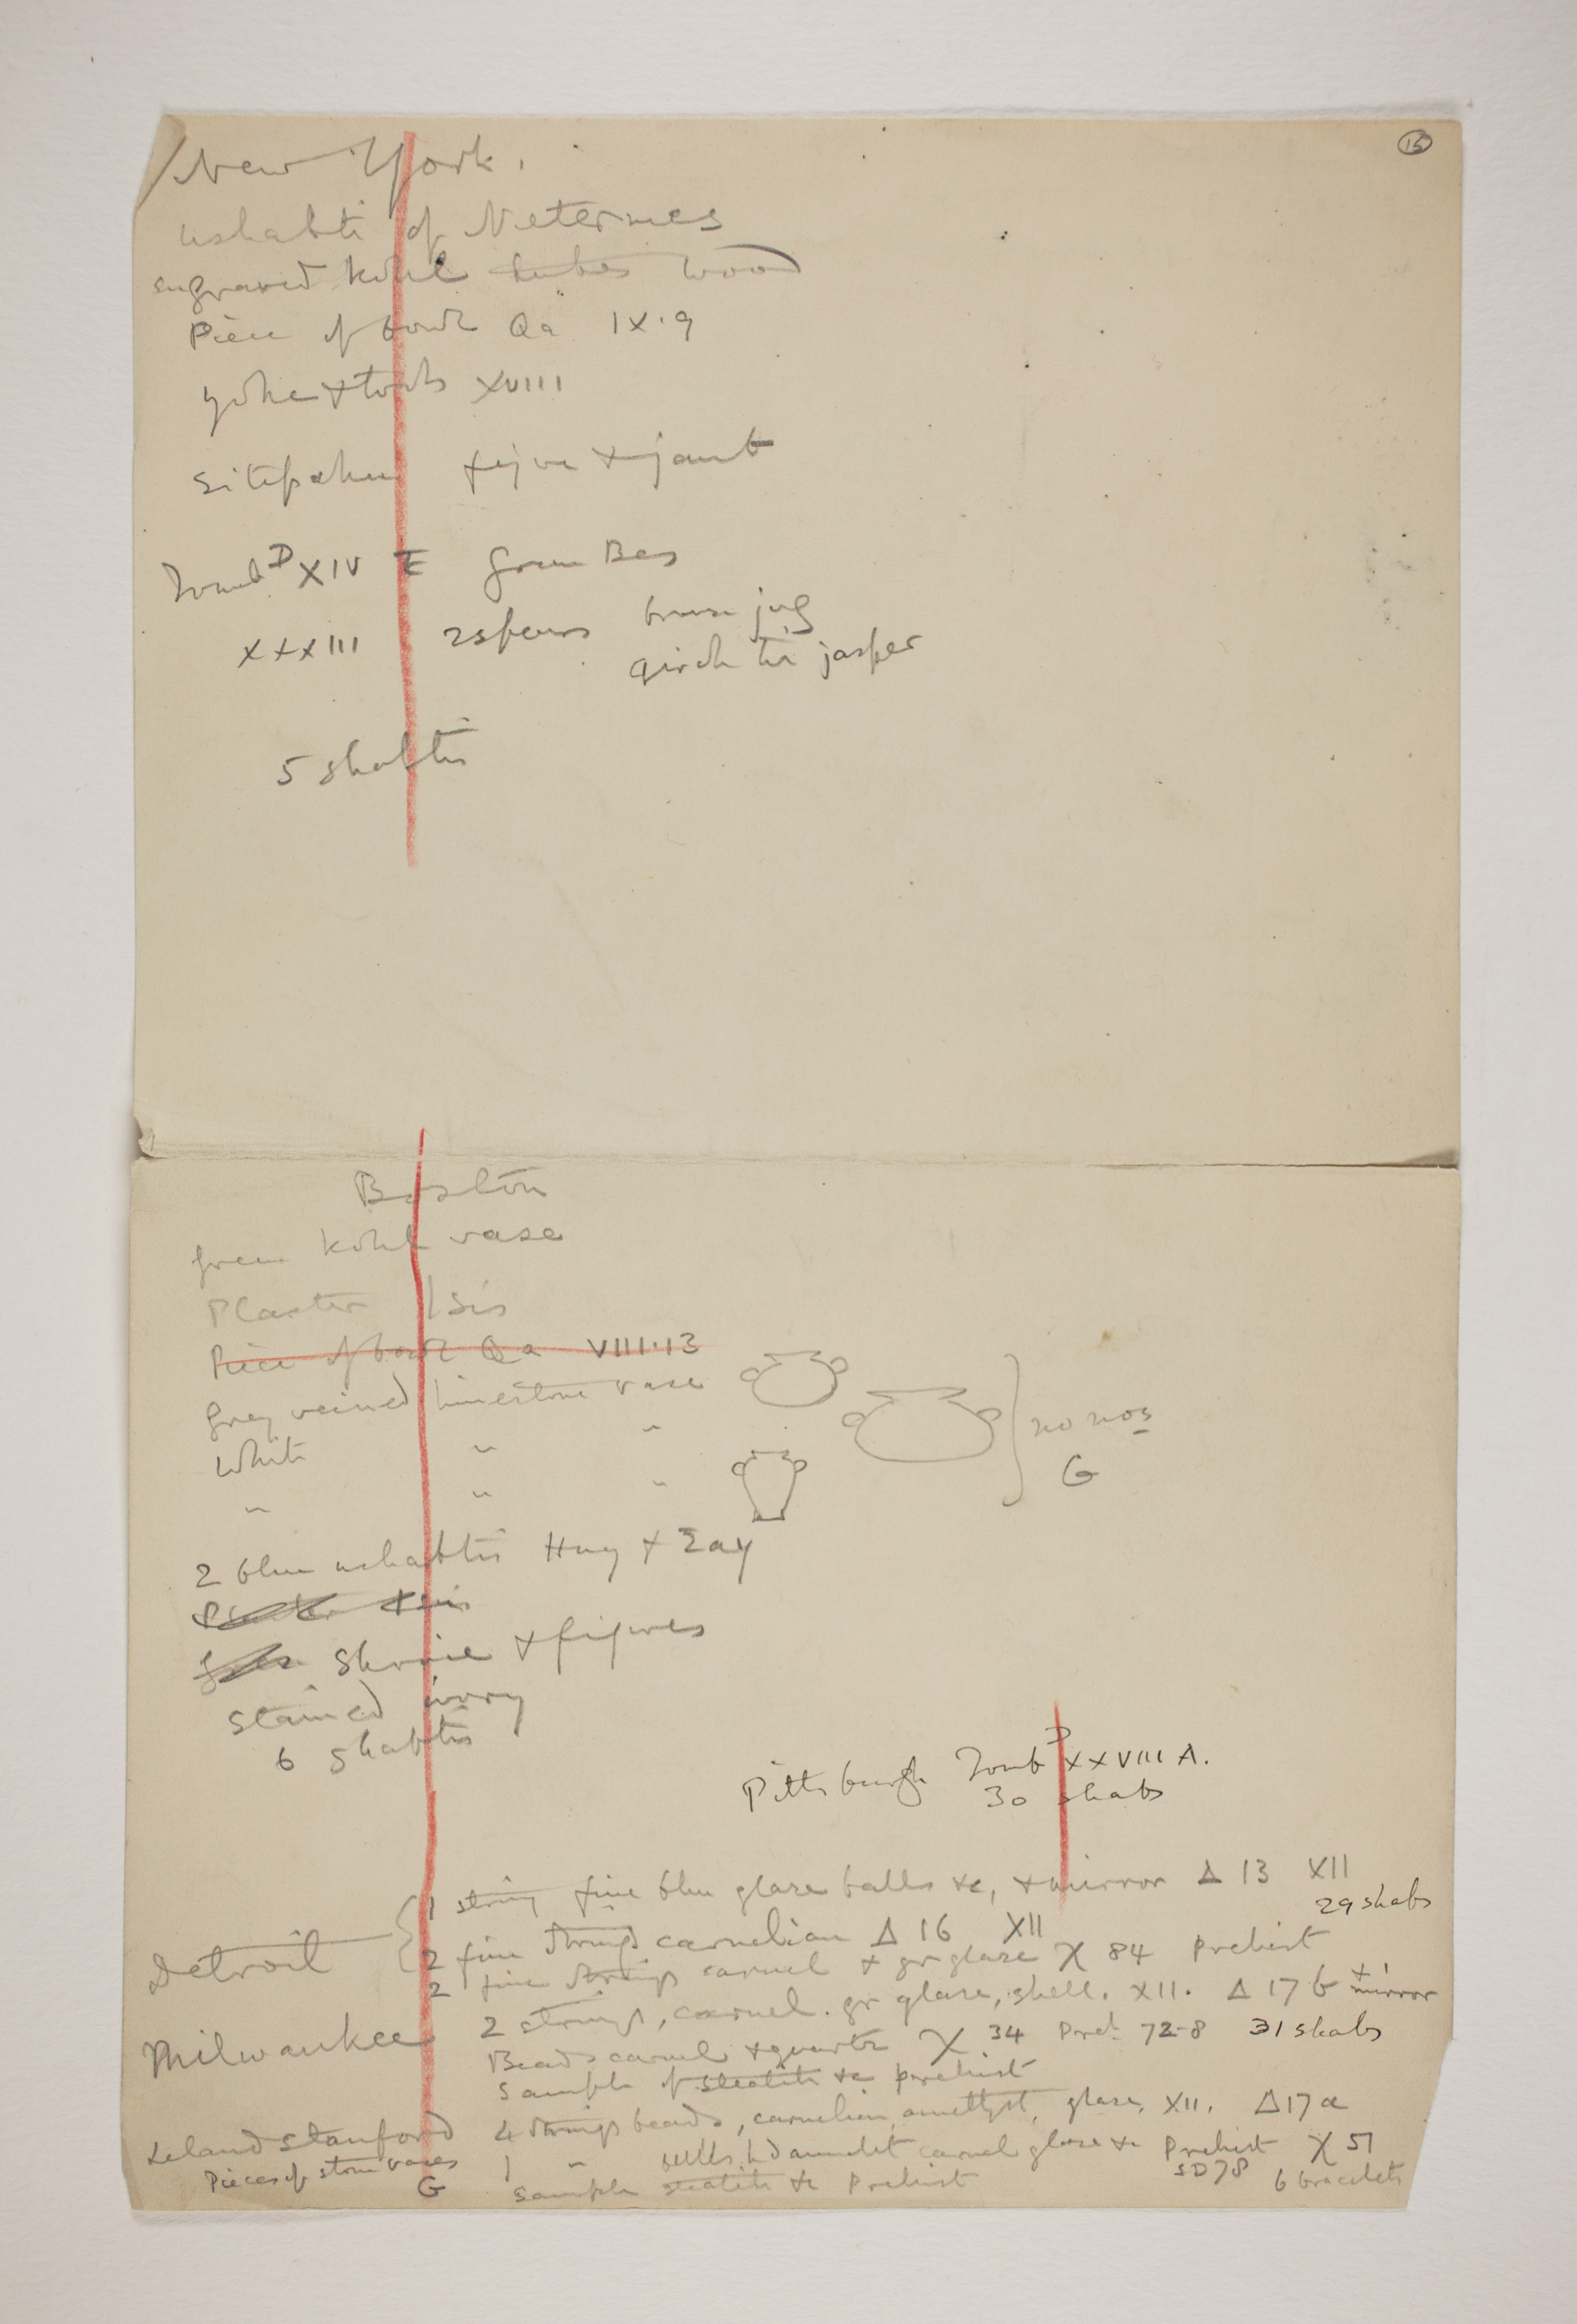 15
New York.
Ushabti of Netermes
engraved kohl tubes wood
Piece of bowl Qa IX.9
yoke & tools XVIII
Sitepahu figure & jamb
Tomb D XIV E Green Bes
XXXIII 2 spears bronze jug
girdle tie jasper
5 shabtis
Boston
green kohl vase
Plaster Isis
Piece of bowl Qa VIII.13
Grey veined limestone vase
no nos
White " "
G
" " "
2 blue ushabtis Huy & Zay
Plaster Isis
Shrine & figures
Stained ivory
6 shabtis
Pittsburgh Tomb D XXVIII A.
30 shabs
Detroit
1 string fine blue glaze balls &c, & mirror Δ 13 XII
29 shabs
2 fine strings carnelian Δ 16 XII
2 fine strings carnel & gr glaze χ 84 Prehist
Milwaukee
2 strings, carnel. gr glaze, shell. XII. Δ 17 b + 1 mirror
Beads carnel & quartz χ 34 Preh. 72-8 31 shabs
Sample of steatite &c prehist
Leland Stanford
4 strings beads, carnelian, amethyst, glaze, XII. Δ 17 a
Pieces of stone vases
G
1 " hd amulet carnel glaze &c Prehist χ 51
SD 78 6 bracelets
Sample steatite &c Prehist